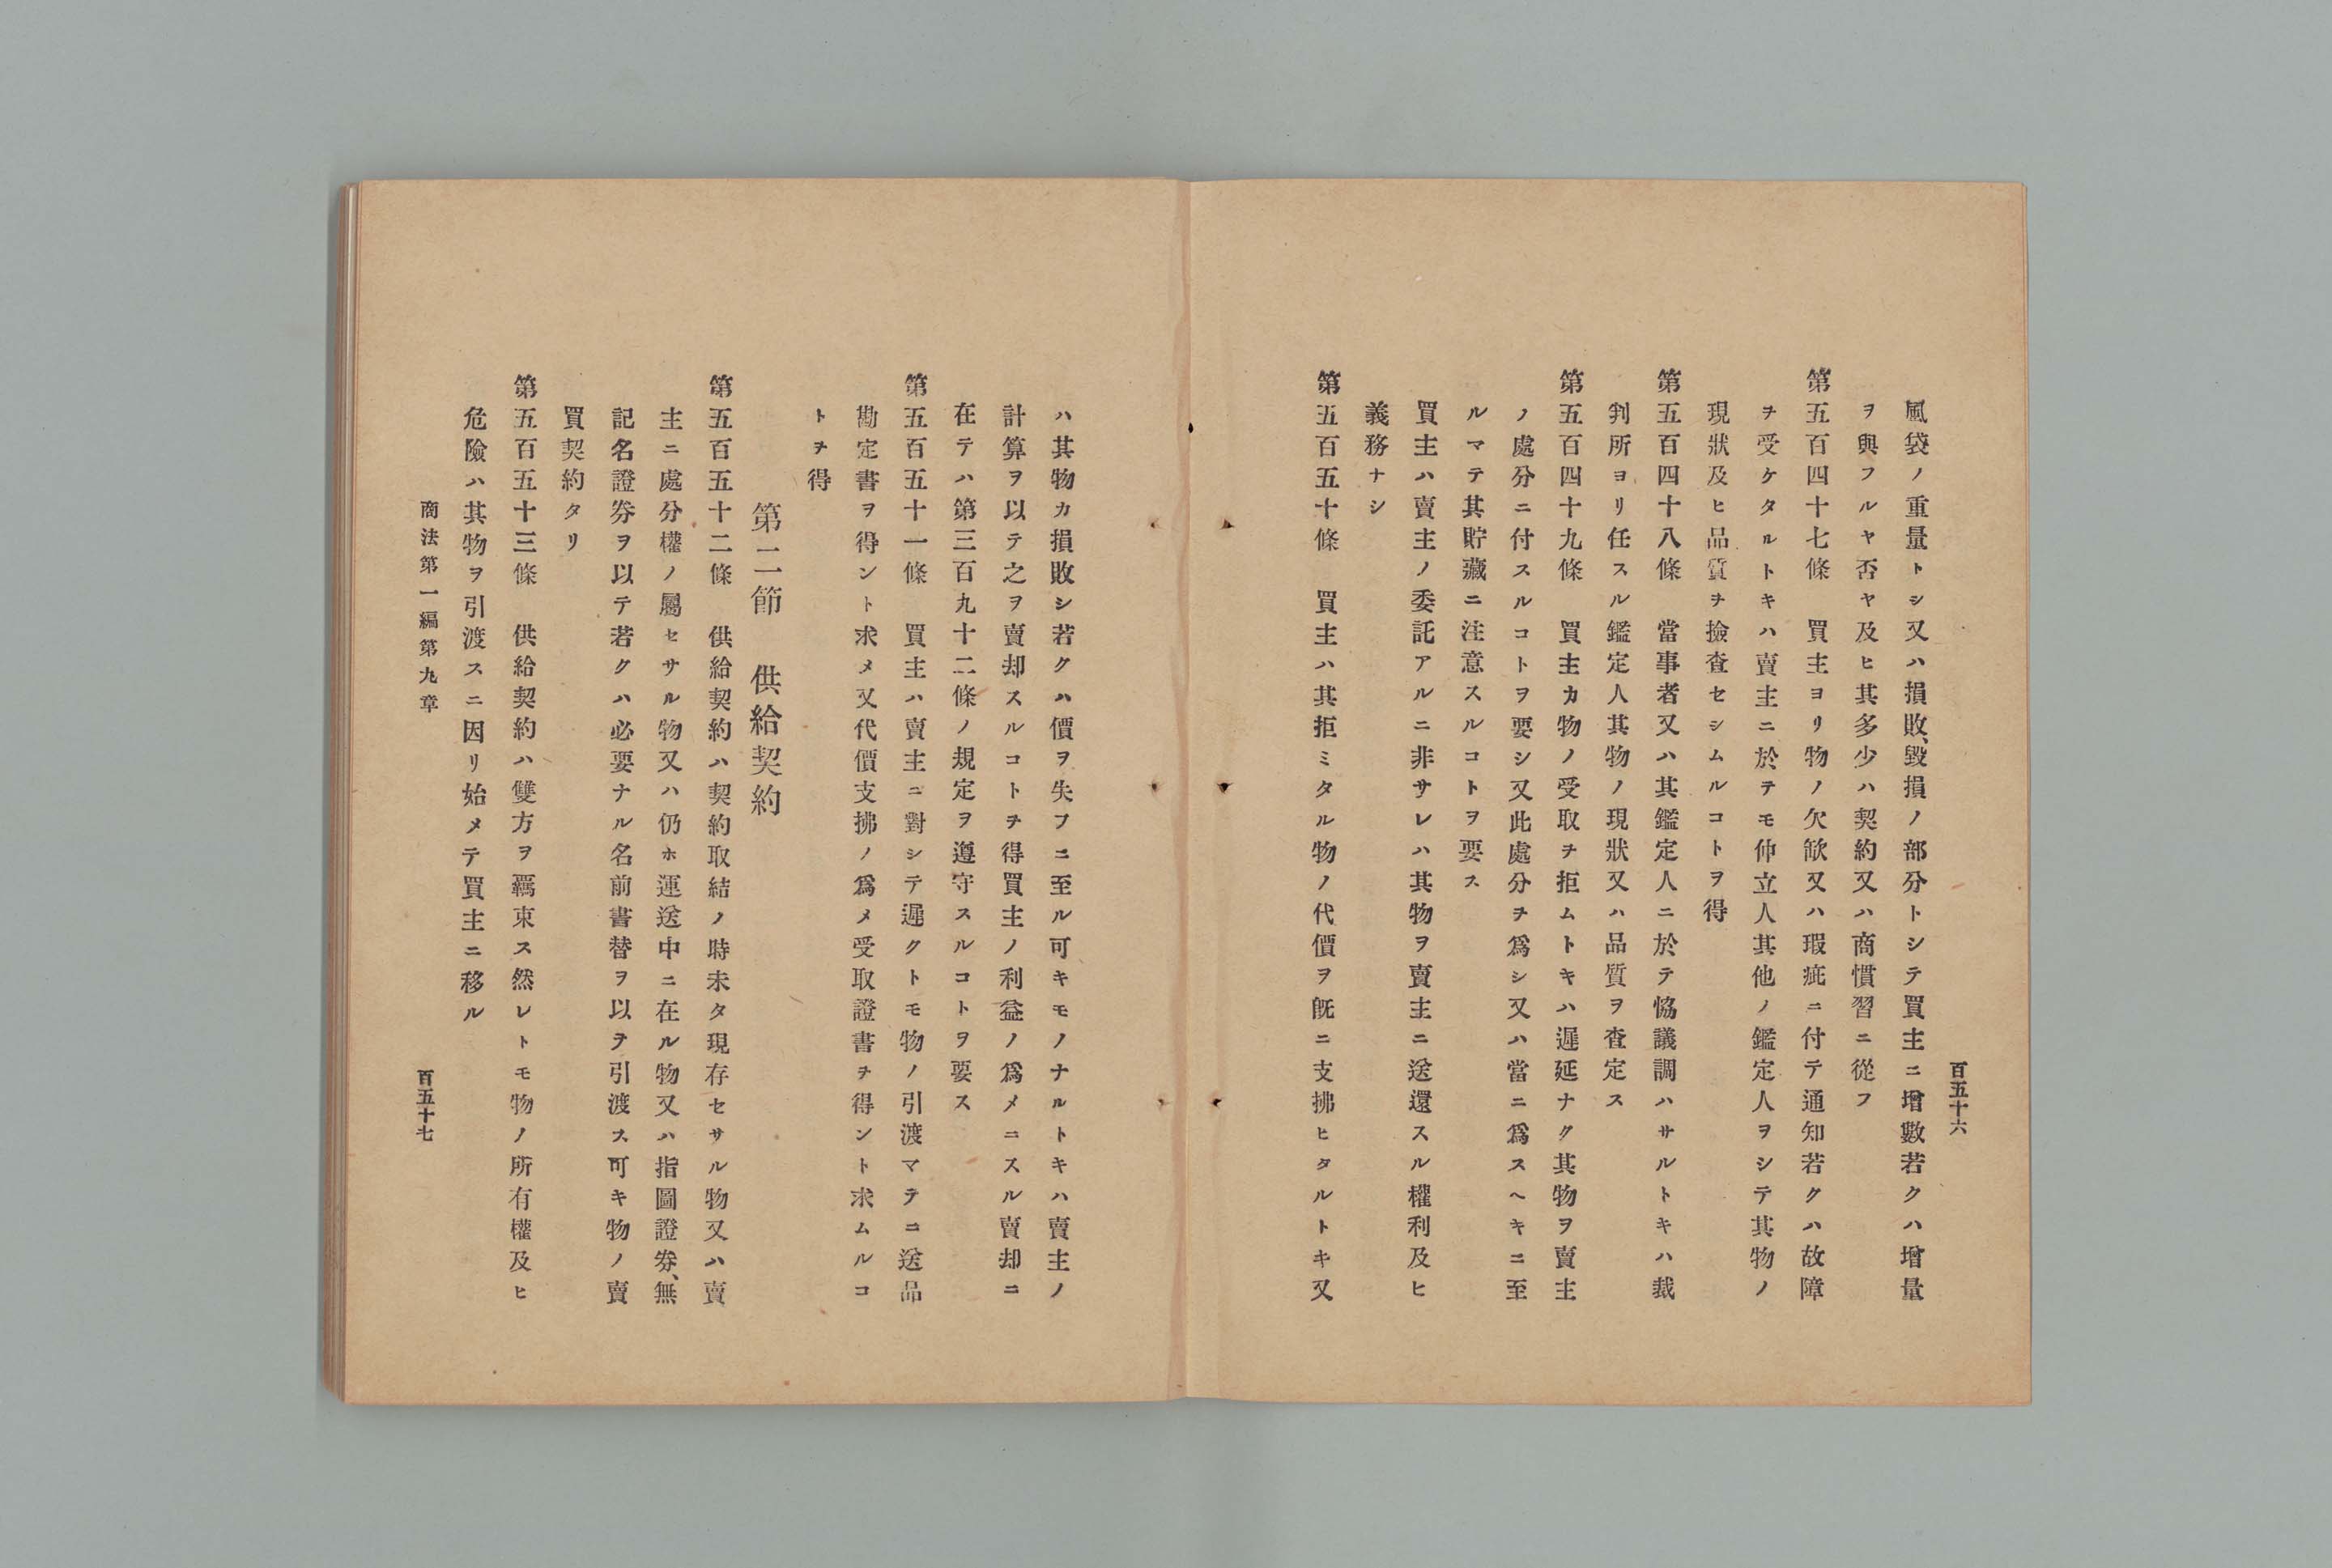 百五十六
風袋ノ重量トシ又ハ損敗、毀損ノ部分トシテ買主ニ增數若クハ增量
ヲ與フルヤ否ヤ及ヒ其多少ハ契約又ハ商慣習ニ從フ
第五百四十七條　買主ヨリ物ノ欠歉又ハ瑕疵ニ付テ通知若クハ故障
ヲ受ケタルトキハ賣主ニ於テモ仲立人其他ノ鑑定人ヲシテ其物ノ
現狀及ヒ品質ヲ撿査セシムルコトヲ得
第五百四十八條　當事者又ハ其鑑定人ニ於テ恊議調ハサルトキハ裁
判所ヨリ任スル鑑定人其物ノ現狀又ハ品質ヲ査定ス
第五百四十九條　買主カ物ノ受取ヲ拒ムトキハ遲延ナク其物ヲ賣主
ノ處分ニ付スルコトヲ要シ又此處分ヲ爲シ又ハ當ニ爲スヘキニ至
ルマテ其貯藏ニ注意スルコトヲ要ス
買主ハ賣主ノ委託アルニ非サレハ其物ヲ賣主ニ送還スル權利及ヒ
義務ナシ
第五百五十條　買主ハ其拒ミタル物ノ代價ヲ既ニ支拂ヒタルトキ又
ハ其物カ損敗シ若クハ價ヲ失フニ至ル可キモノナルトキハ賣主ノ
計算ヲ以テ之ヲ賣却スルコトヲ得買主ノ利益ノ爲メニスル賣却ニ
在テハ第三百九十二條ノ規定ヲ遵守スルコトヲ要ス
第五百五十一條　買主ハ賣主ニ對シテ遲クトモ物ノ引渡マテニ送品
勘定書ヲ得ント求メ又代價支拂ノ爲メ受取證書ヲ得ント求ムルコ
トヲ得
第二節　供給契約
第五百五十二條　供給契約ハ契約取結ノ時未タ現存セサル物又ハ賣
主ニ處分權ノ屬セサル物又ハ仍ホ運送中ニ在ル物又ハ指圖證券、無
記名證券ヲ以テ若クハ必要ナル名前書替ヲ以テ引渡ス可キ物ノ賣
買契約タリ
第五百五十三條　供給契約ハ雙方ヲ羈束ス然レトモ物ノ所有權及ヒ
危險ハ其物ヲ引渡スニ因リ始メテ買主ニ移ル
商法第一編第九章
百五十七